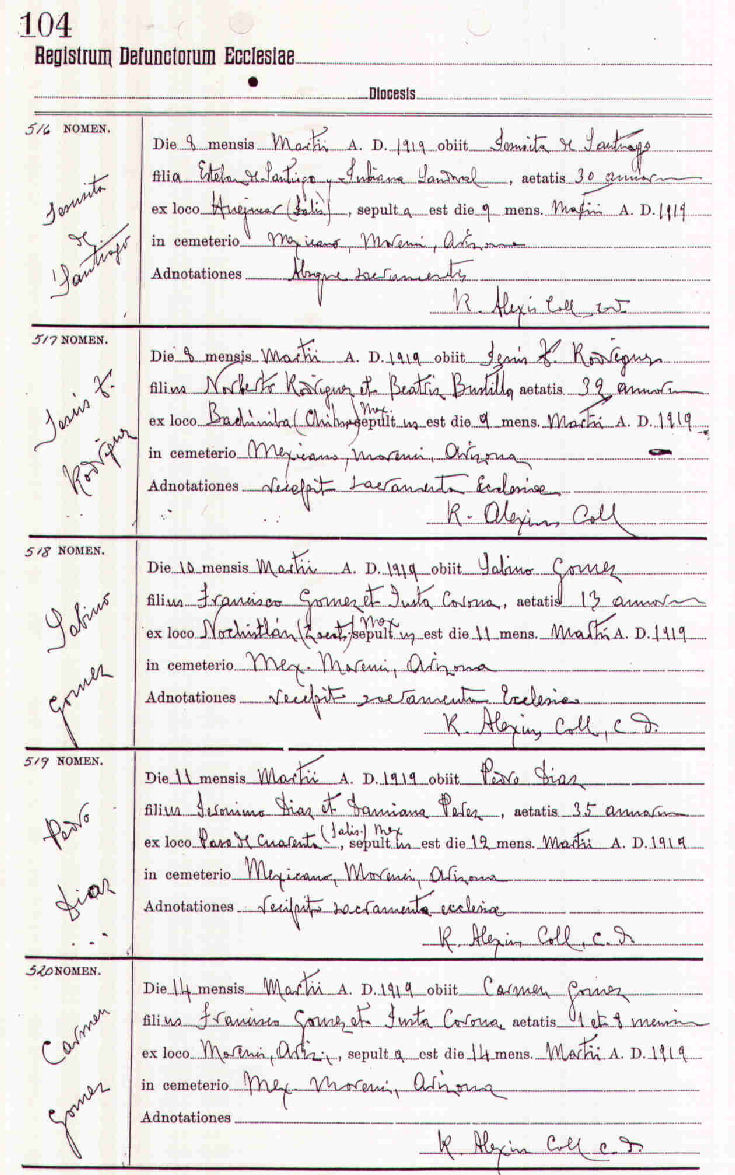 104
Registrum Defunctorum Ecclesiae
Diocesis
516 NOMEN.
Jesusita
de
Santiago
Die 8 mensis Martii A. D. 1919 obiit Jesusita de Santiago
filia Esteban de Santiago y Juliana Sandoval, aetatis 30 annorum
ex loco (Jalis), sepulta est die 9 mens. Martii A. D. 1919
in cemeterio Mexicano, Morenci, Arizona
Adnotationes Absque sacramentis
R. Alexis Coll
517 NOMEN.
Jesús F.
Rodriguez
Die 8 mensis Martii A. D. 1919 obiit Jesús F. Rodriguez
filius Norberto Rodriguez et Beatriz Bustillo aetatis 32 annorum
ex loco Bachiniba (Chihua) Mex sepultus est die 9 mens. Martii A. D. 1919
in cemeterio Mexicano, Morenci, Arizona
Adnotationes Recepit sacramenta Ecclesiae
R. Alexius Coll
518 NOMEN.
Sabino
Gomez
Die 10 mensis Martii A. D. 1919 obiit Sabino Gomez
filius Francisco Gomez et Justa Corona, aetatis 13 annorum
ex loco Nochistlán (Zacat.) Mex sepultus est die 11 mens. Martii A. D. 1919
in cemeterio Mex. Morenci, Arizona
Adnotationes Recepit sacramenta Ecclesiae
R. Alexius Coll, c. d.
519 NOMEN.
Pedro
Diaz
Die 11 mensis Martii A. D. 1919 obiit Pedro Diaz
filius Jeronimo Diaz et Damiana Perez, aetatis 35 annorum
ex loco Paso de Cuarenta (Jalis.) Mex, sepultus est die 12 mens. Martii A. D. 1919
in cemeterio Mexicano, Morenci, Arizona
Adnotationes Recepit sacramenta ecclesiae
R. Alexius Coll, c. d.
520 NOMEN.
Carmen
Gomez
Die 14 mensis Martii A. D. 1919 obiit Carmen Gomez
filius Francisco Gomez et Justa Corona, aetatis 1 et 8 mensium
ex loco Morenci, Ariz., sepulta est die 14 mens. Martii A. D. 1919
in cemeterio Mex. Morenci, Arizona
Adnotationes
R. Alexius Coll c. d.